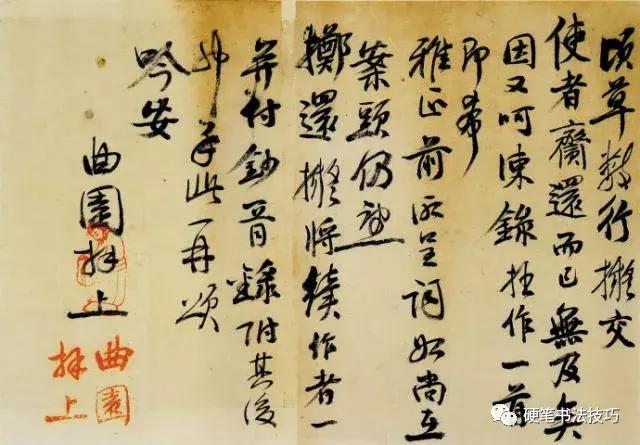 頃草數行擬交
使者齎還而已無及矣
因又呵凍錄拙作一首
即希
雅正前所呈詞如尚在
案頭仍懇
擲還擬將續作者一
并付鈔胥錄附其後
也手此再頌
吟安
曲園拜上
曲園
拜上
硬笔书法技巧